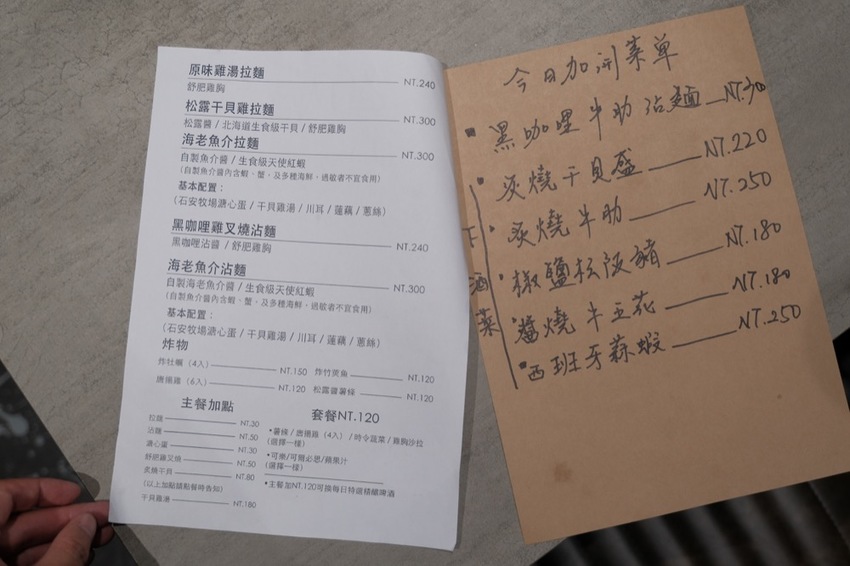 原味雞湯拉麵 NT.240
舒肥雞胸
松露干貝雞拉麵 NT.300
松露醬 / 北海道生食級干貝 / 舒肥雞胸
海老魚介拉麵 NT.300
自製魚介醬 / 生食級天使紅蝦
(自製魚介醬內含蝦、蟹、及多種海鮮，過敏者不宜食用)
基本配置：
(石安牧場溏心蛋 / 干貝雞湯 / 川耳 / 蓮藕 / 蔥絲)
黑咖哩雞叉燒沾麵 NT.240
黑咖哩沾醬 / 舒肥雞胸
海老魚介沾麵 NT.300
自製海老魚介醬 / 生食級天使紅蝦
(自製魚介醬內含蝦、蟹、及多種海鮮，過敏者不宜食用)
基本配置：
(石安牧場溏心蛋 / 干貝雞湯 / 川耳 / 蓮藕 / 蔥絲)
炸物
炸牡蠣 (4入) NT.150 炸竹筴魚 NT.120
唐揚雞 (6入) NT.120 松露醬薯條 NT.120
主餐加點
拉麵 NT.30
沾麵 NT.50
溏心蛋 NT.30
舒肥雞叉燒 NT.50
炙燒干貝 NT.80
(以上加點請點餐時告知)
干貝雞湯 NT.180
套餐NT.120
•薯條 / 唐揚雞 (4入) / 時令蔬菜 / 雞胸沙拉
(選擇一樣)
•可樂/可爾必思/蘋果汁
(選擇一樣)
•主餐加NT.120可換每日特選精釀啤酒
今日加洌菜单
黑咖哩牛肋沾麵 NT.300
炙燒干貝盛 NT.220
炙燒牛肋 NT.250
椒鹽松阪豬 NT.180
醬燒牛五花 NT.180
西班牙蒜蝦 NT.250
下酒菜